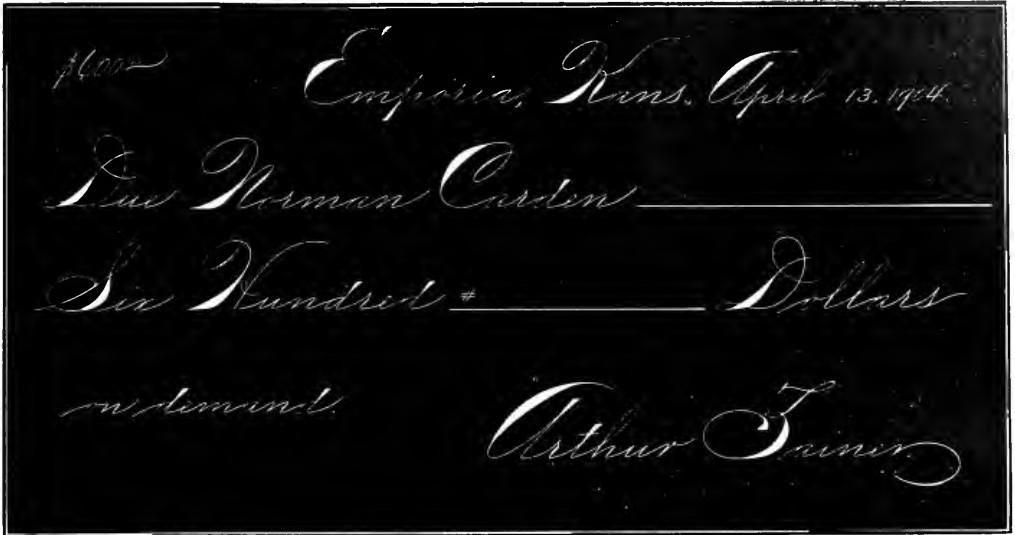 $600 00 Emporia, Kans. April 13. 1904.
Due Norman Carden
Six Hundred # Dollars
on demand. Arthur